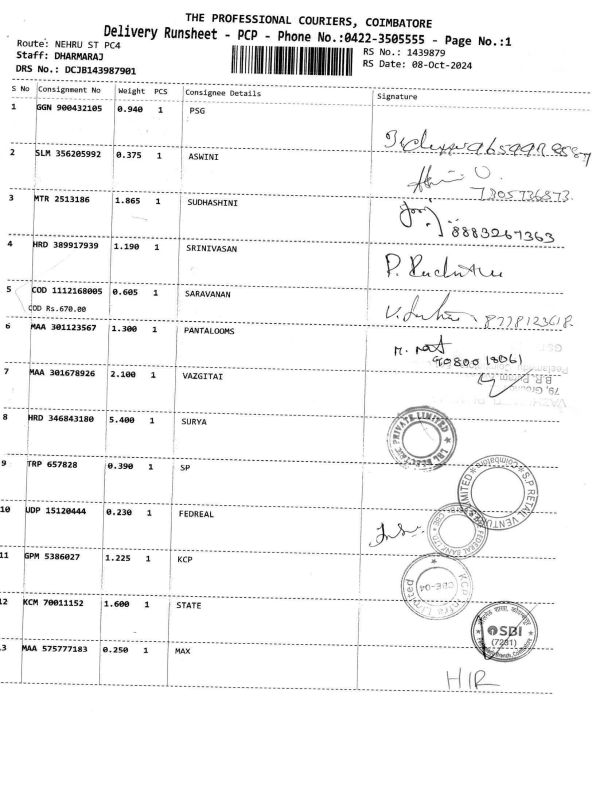 THE PROFESSIONAL COURIERS, COIMBATORE
Delivery Runsheet - PCP - Phone No.:0422-3505555 - Page No.:1
Route: NEHRU ST PC4
RS No.: 1439879
Staff: DHARMARAJ
RS Date: 08-Oct-2024
DRS No.: DCJB143987901
S No Consignment No Weight PCS Consignee Details Signature
1 GGN 900432105 0.940 1 PSG
2 SLM 356205992 0.375 1 ASWINI
7305736873
3 MTR 2513186 1.865 1 SUDHASHINI
8883267363
4 HRD 389917939 1.190 1 SRINIVASAN
5 COD 1112168005 0.605 1 SARAVANAN
COD Rs.670.00
8778123618
6 MAA 301123567 1.300 1 PANTALOOMS
9080018061
7 MAA 301678926 2.100 1 VAZGITAI
8 HRD 346843180 5.400 1 SURYA
PRIVATE LIMITED
9 TRP 657828 0.390 1 SP
S.P RETAIL VENTURES LIMITED * Coimbatore *
10 UDP 15120444 0.230 1 FEDREAL
FEDERAL BANK
11 GPM 5386027 1.225 1 KCP
KCP Infra Limited
CBE-04
12 KCM 70011152 1.600 1 STATE
SBI
(7231)
3 MAA 575777183 0.250 1 MAX
HIR